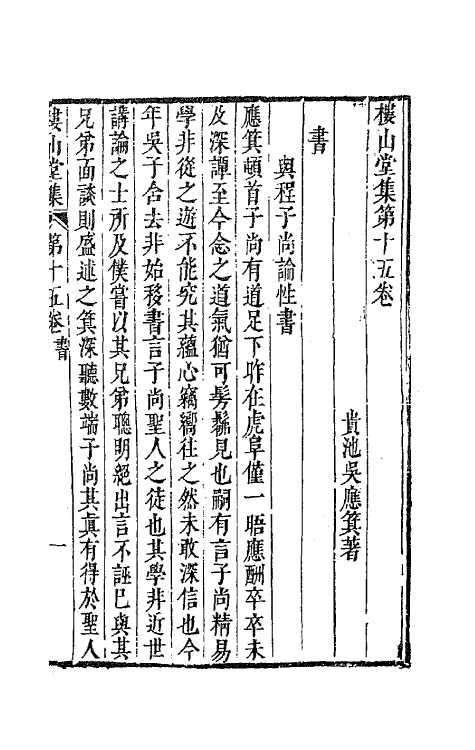 樓山堂集第十五卷
貴池吳應箕著
書
與程子尚論性書
應箕頓首子尚有道足下昨在虎阜僅一晤應酬卒卒未
及深譚至今念之道氣猶可髣髴見也嗣有言子尚精易
學非從之遊不能究其蘊心竊嚮往之然未敢深信也今
年吳子含去非始移書言子尚聖人之徒也其學非近世
講論之士所及僕嘗以其兄弟聰明絕出言不誣巳與其
兄弟面談則盛述之箕深聽數端子尚其真有得於聖人
樓山堂集 第十五卷 書 一